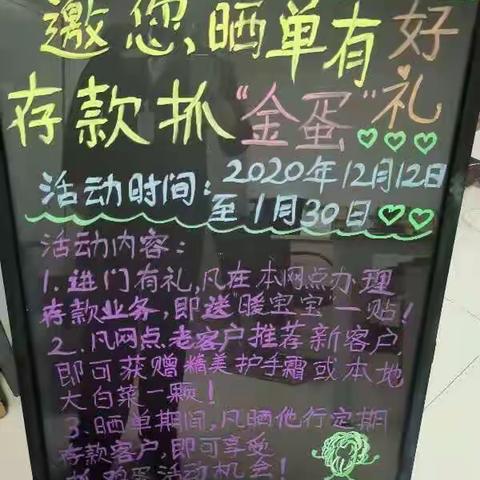 邀您、晒单有好礼
存款抓“金蛋”
活动时间：2020年12月12日
至1月30日
活动内容：
1.进门有礼,凡在本网点办理
存款业务,即送“暖宝宝一贴!
2.凡网点老客户推荐新客户,
即可获赠精美护手霜或本地
大白菜一颗!
3.晒单期间,凡晒他行定期
存款客户,即可享受
抓鸡蛋活动机会!